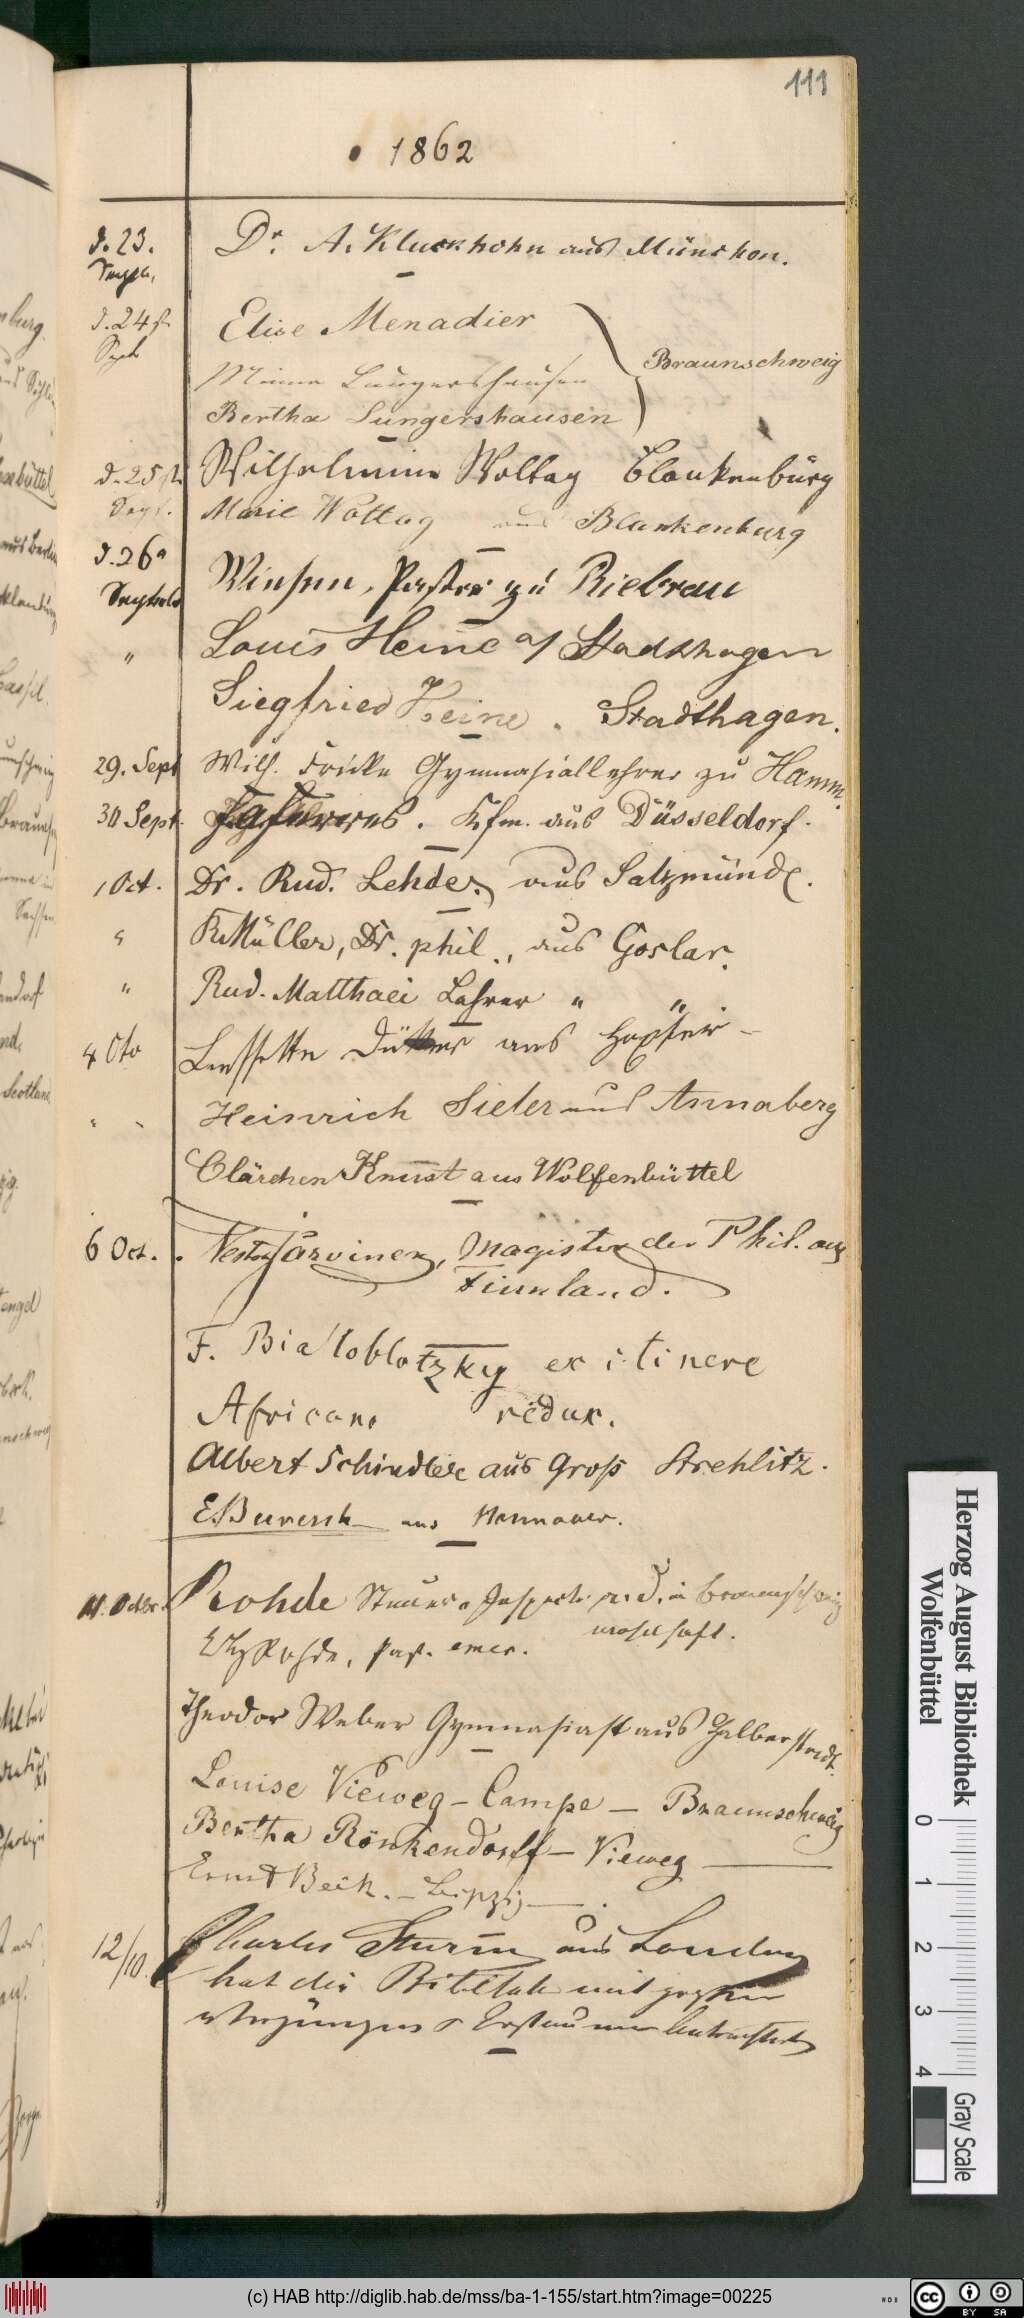 111
1862
d. 23. Septb. Dr. A. Kluckhohn aus München.
d. 24st. Elise Menadier
Braunschweig
Minna Langershausen
Bertha Sungershausen
d. 25st. Wilhelmine Woltag Blankenburg
Sept. Marie Wottag aus Blankenburg
d. 26
Septbr Winsen, Pastor zu Riebrau
" Louis Heine a/ Stadthagen
Siegfried Heine. Stadthagen.
29. Sept Wilh. Fricke Gymnasiallehrer zu Hamm.
30 Sept. Kfm. aus Düsseldorf.
1 Oct. Dr. Rud. Lehder, aus Salzmünde.
" K. Müller, Dr. phil., aus Goslar.
" Rud. Matthaei Lehrer " "
4 Oto aus Höxter
" " Heinrich Sieler aus Annaberg
Clärchen Knust aus Wolfenbüttel
6 Oct. Nestor Järvinen, Magister der Phil. aus
Finnland.
F. Bialloblotzky ex itinere
Africano redux.
Albert Schindler aus Groß Strehlitz.
E. Buresch aus Hannover.
11. Octbr. Rohde Steuer-Inspector a. D. in Braunschweig
wohnhaft.
Rohde, Past. emer.
Theodor Weber Gymnasiast aus Halberstadt.
Louise Vieweg - Campe - Braunschweig
Bertha Rönckendorff - Vieweg
Ernst Beck. - Leipzig
12/10. Charles Sturm aus London
hat die Bibliothek mit großem
Vergnügen & Erstaunen
Herzog August Bibliothek
Wolfenbüttel
0 1 2 3 4
Gray Scale
(c) HAB http://diglib.hab.de/mss/ba-1-155/start.htm?image=00225
WDB
cc BY SA